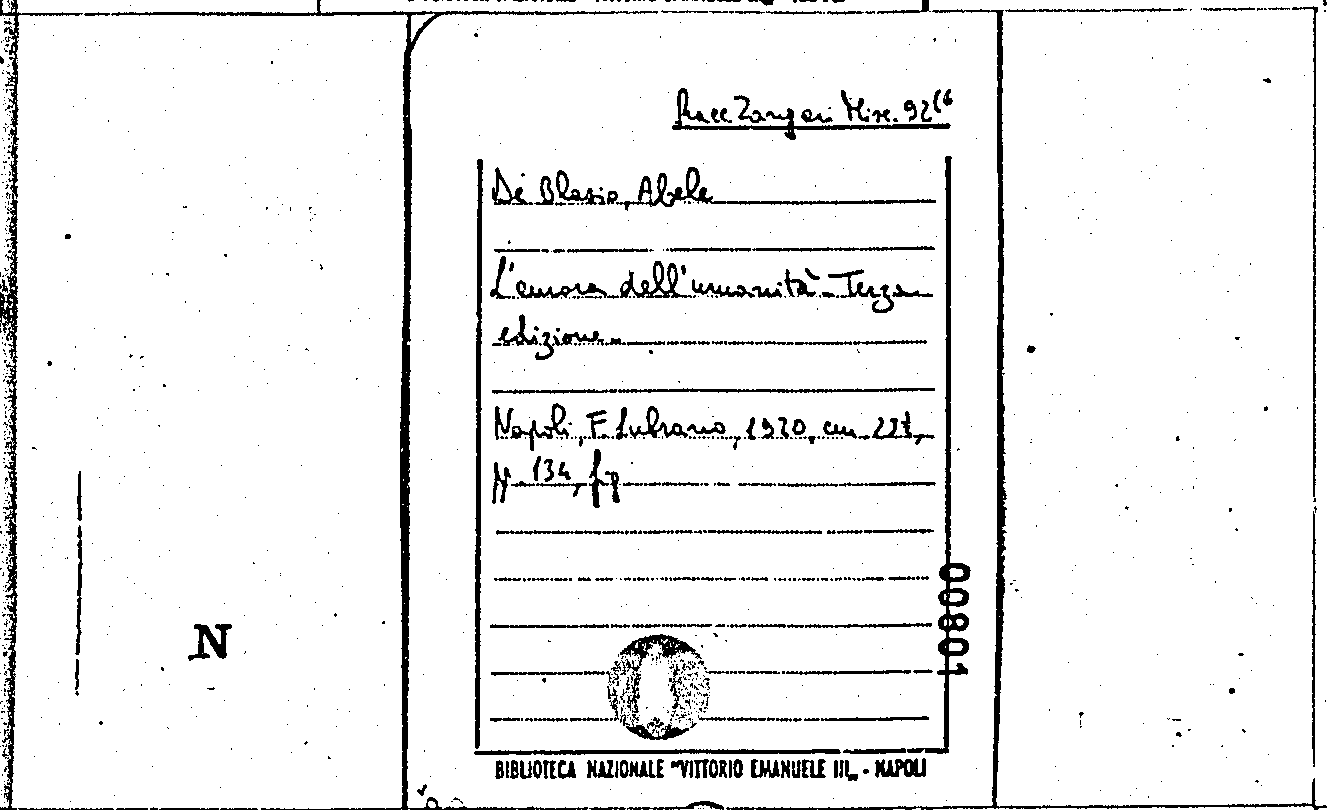 Racc. Zangari Misc. 92(6
De Blasio, Abele
L'amora dell'umanità - Terza
edizione.
Napoli, F. Lubrano, 1920, cm. 22½,
pp. 134, fig
00801
N
BIBLIOTECA NAZIONALE "VITTORIO EMANUELE III„ - NAPOLI